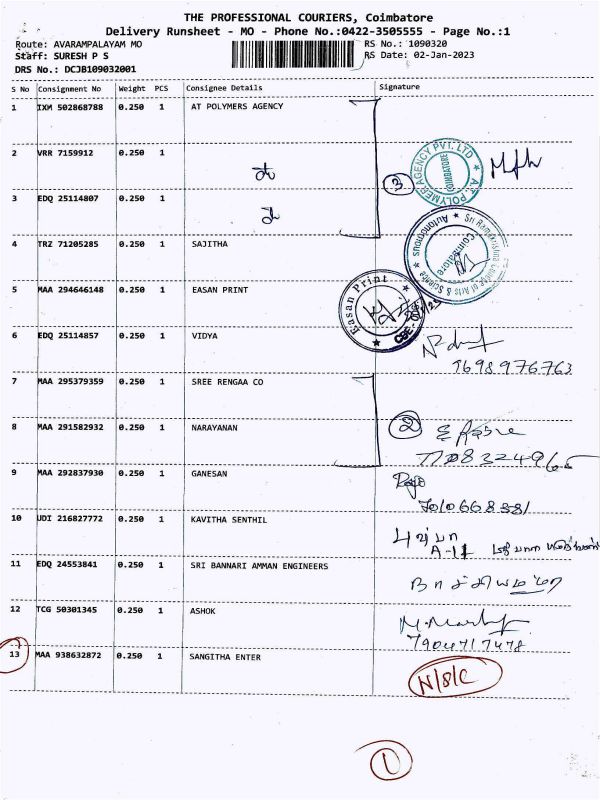 THE PROFESSIONAL COURIERS, Coimbatore
Delivery Runsheet - MO - Phone No.:0422-3505555 - Page No.:1
Route: AVARAMPALAYAM MO RS No.: 1090320
Staff: SURESH P S RS Date: 02-Jan-2023
DRS No.: DCJB109032001
S No Consignment No Weight PCS Consignee Details Signature
1 IXM 502868788 0.250 1 AT POLYMERS AGENCY
2 VRR 7159912 0.250 1
A.T. POLYMER AGENCY PVT. LTD
COIMBATORE
3
3 EDQ 25114807 0.250 1
4 TRZ 71205285 0.250 1 SAJITHA
Sri Ramakrishna College of Arts & Science
Autonomous
Coimbatore
5 MAA 294646148 0.250 1 EASAN PRINT
Easan Print
6 EDQ 25114857 0.250 1 VIDYA
7 MAA 295379359 0.250 1 SREE RENGAA CO
8 MAA 291582932 0.250 1 NARAYANAN
2
9 MAA 292837930 0.250 1 GANESAN
10 UDI 216827772 0.250 1 KAVITHA SENTHIL
A-11
11 EDQ 24553841 0.250 1 SRI BANNARI AMMAN ENGINEERS
12 TCG 50301345 0.250 1 ASHOK
7904717478
13 MAA 938632872 0.250 1 SANGITHA ENTER
N/S/C
1